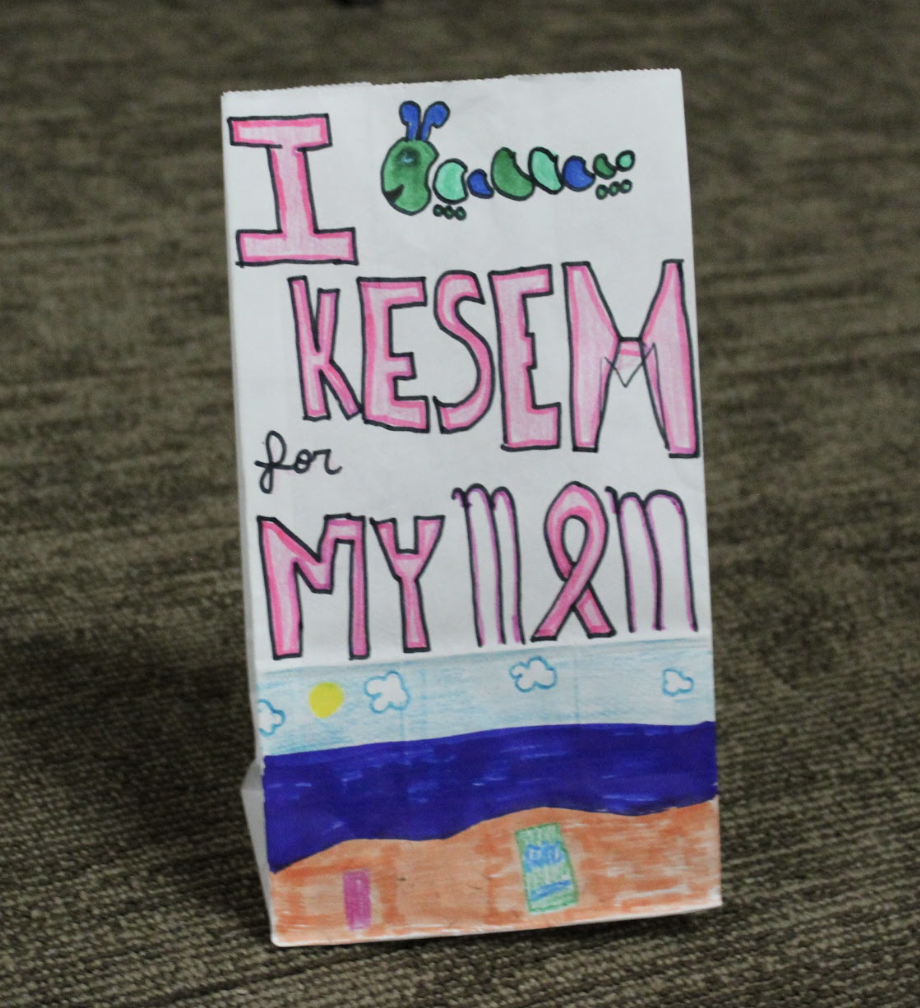 I
KESEM
for
MY MOM